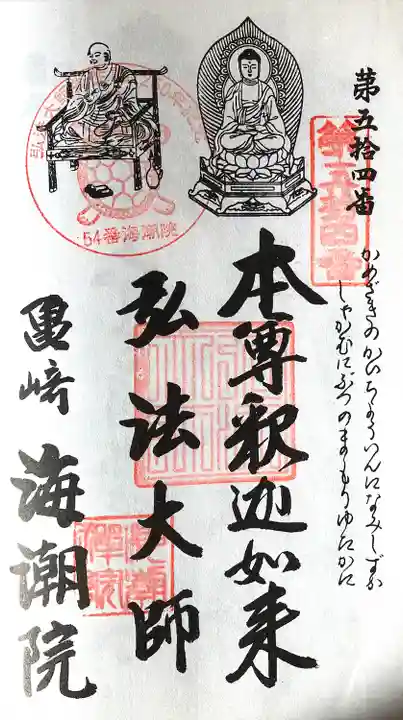 第五拾四番
第五拾四番
かめざきのかいちょういんになみしずか
しゃかむにぶつのまもりゆたかに
本尊釈迦如来
弘法大師
亀崎 海潮院
54番海潮院